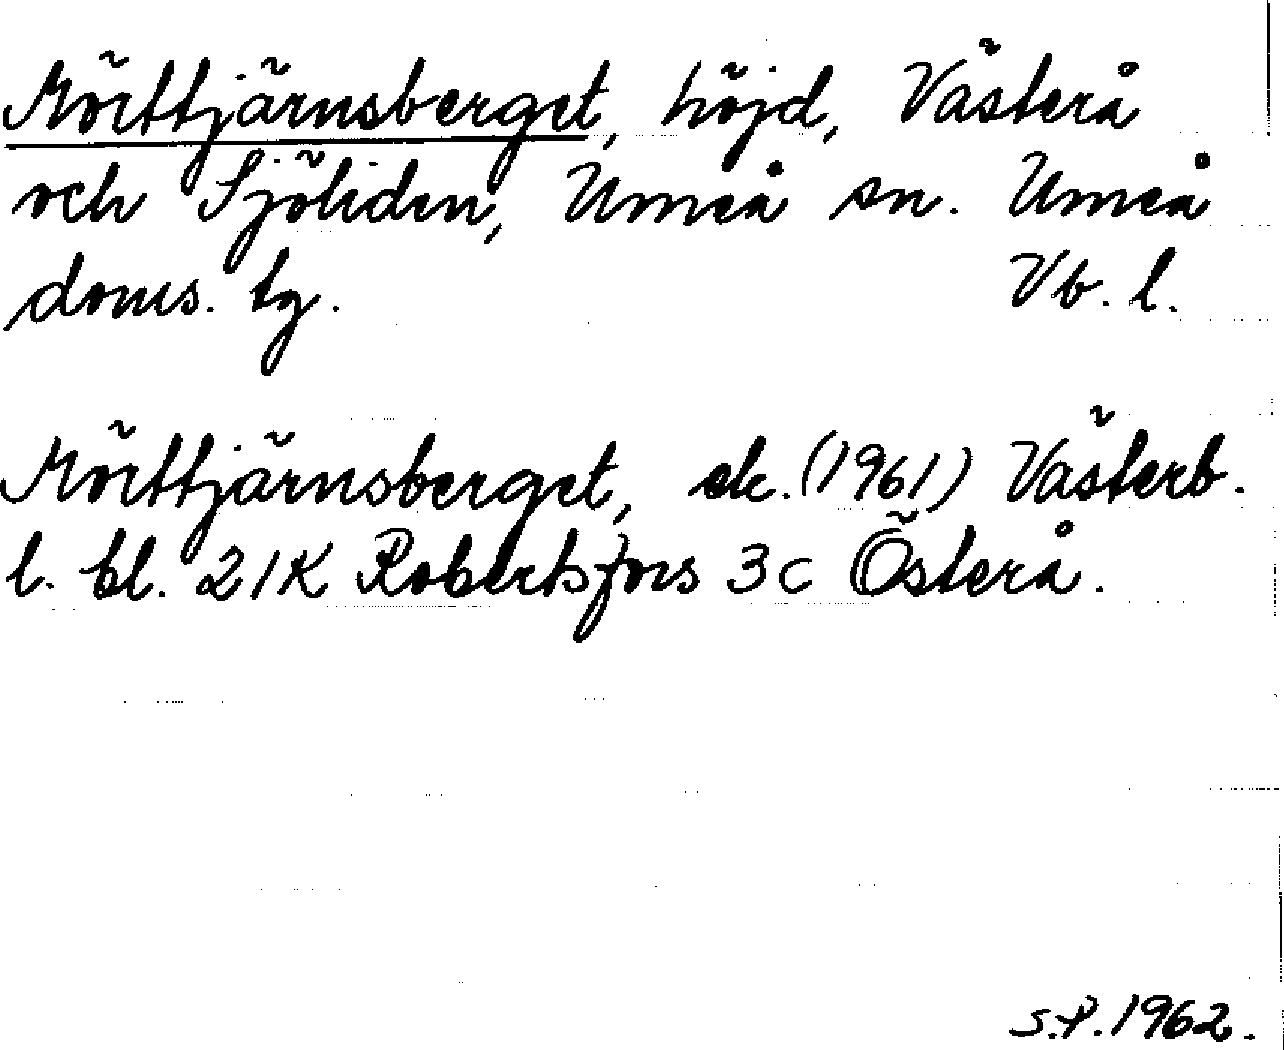 Mörttjärnsberget, höjd, Västerå
och Sjöliden, Umeå sn. Umeå
doms. tg. Vb. l.
Mörttjärnsberget, ek. (1961) Västerb.
l. bl. 21K Robertsfors 3c Österå.
S.P. 1962.